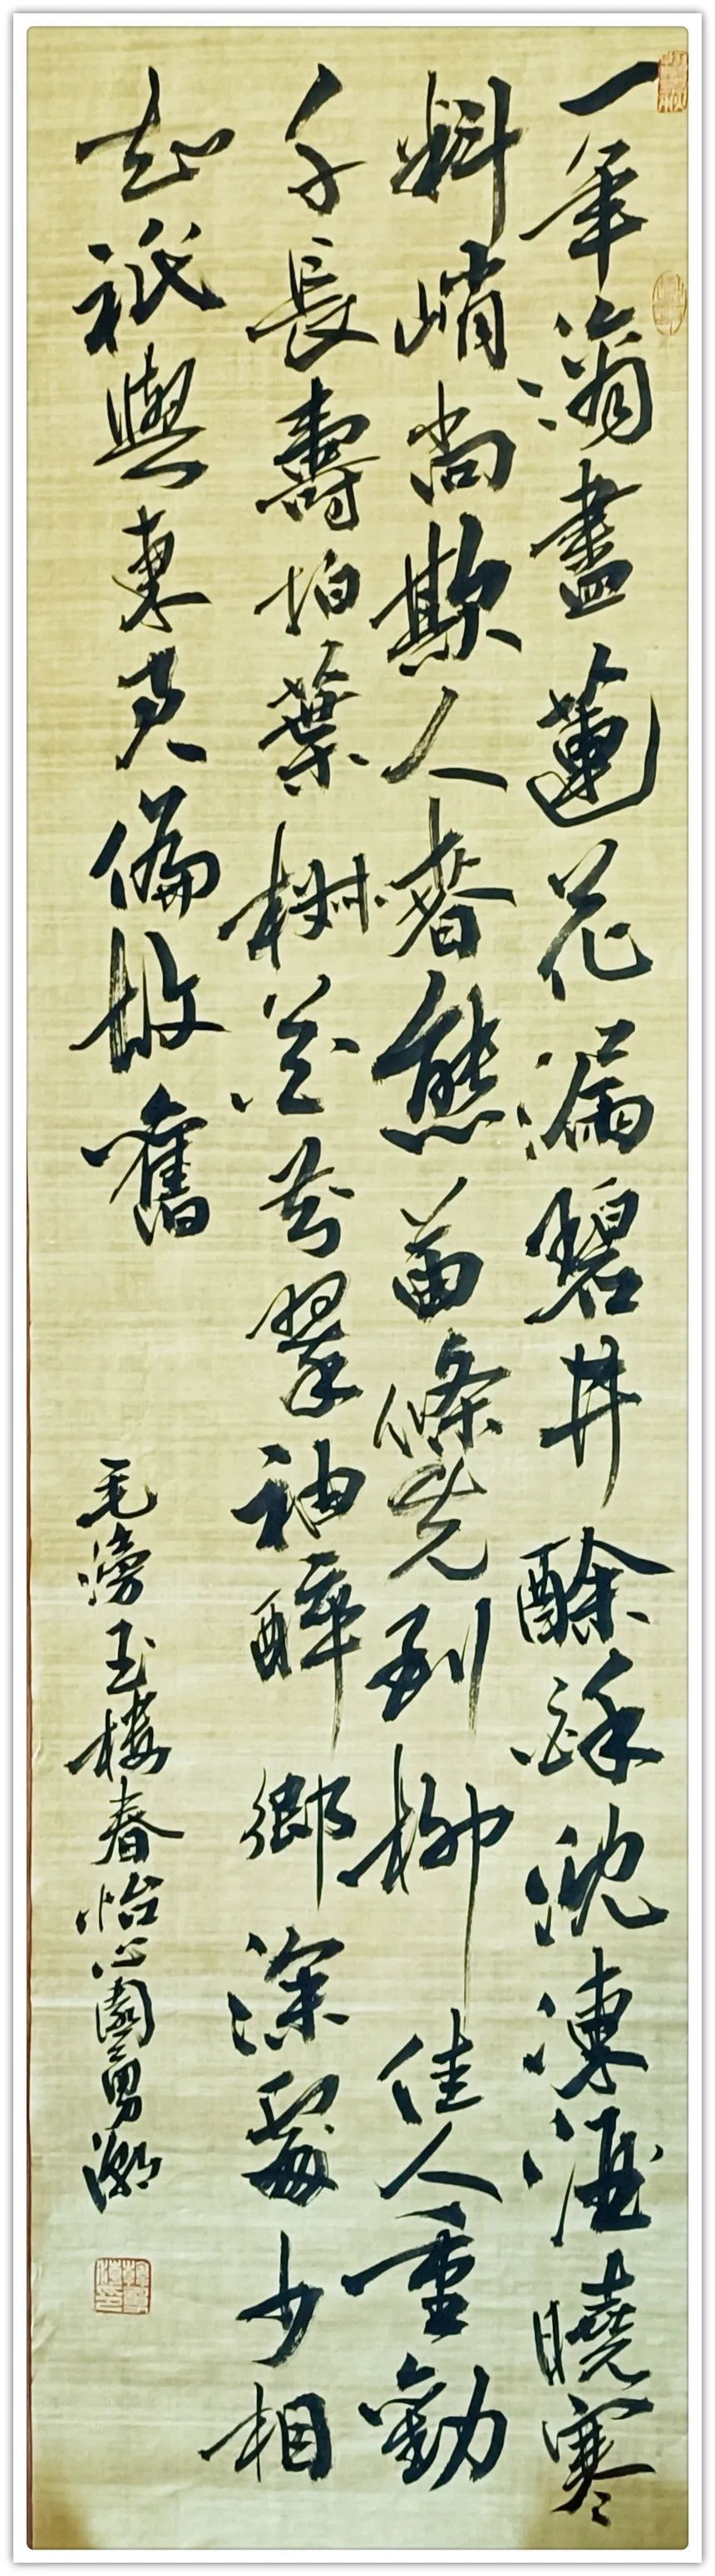 一年滴盡蓮花漏碧井酴酥沈凍酒曉寒
料峭尚欺人春態苗條先到柳佳人重勸
千長壽柏葉椒花芬翠袖醉鄉深處少相
知祇與東君偏故舊
毛滂玉樓春怡心園勇潮